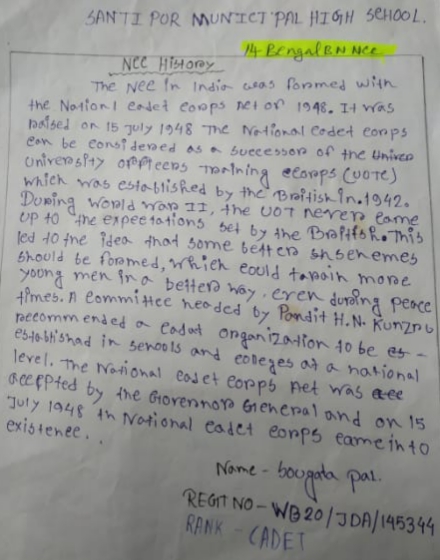 SANTI POR MUNICI PAL HIGH SCHOOL.
14 Bengal BN NCC
NCC History
The NCC in India was formed with
the Nationl cadet corps act of 1948. It was
raised on 15 July 1948 The National cadet corps
can be considered as a successor of the
University officers Training ccorps (UOTC)
which was established by the British in. 1942.
During world war II, the UOT never came
up to the expectations set by the British. This
led to the idea that some better shschemes
should be formed, which could tarain more
young men in a better way. even during peace
times. A committee headed by Pandit H.N. Kunzru
recommended a cadat organization to be es-
established in schools and colleges at a national
level. The National cadet corps act was acc
accepted by the Governor General and on 15
July 1948 th National cadet corps came in to
existence..
Name - bougata pal.
REGIT NO - WB20/JDA/145344
RANK - CADET